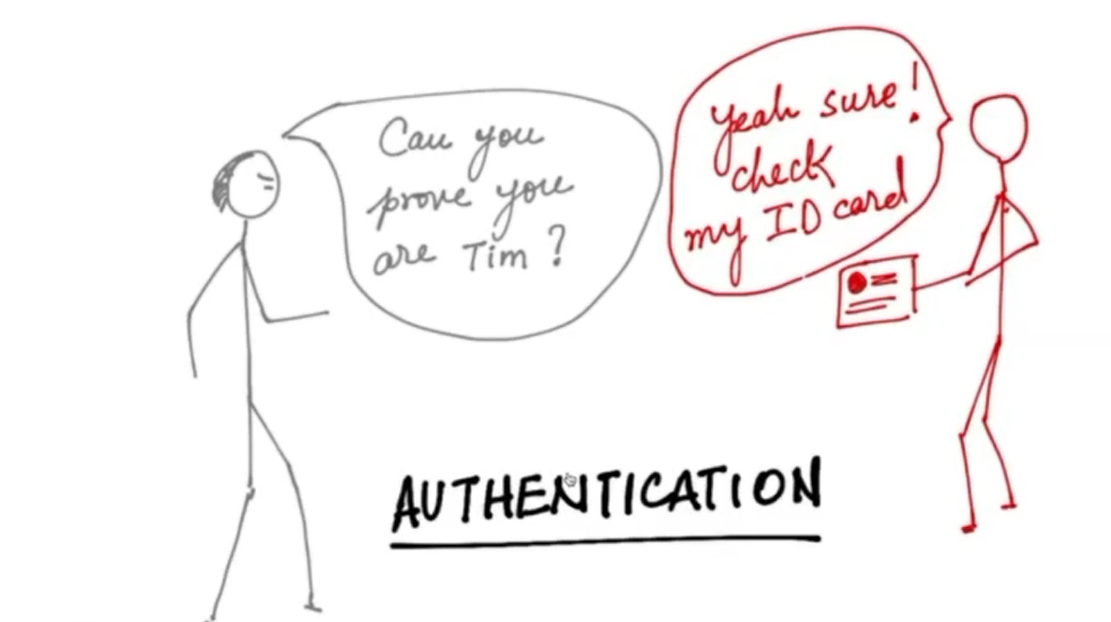 Can you
prove you
are Tim?
Yeah sure!
check
my ID card
AUTHENTICATION